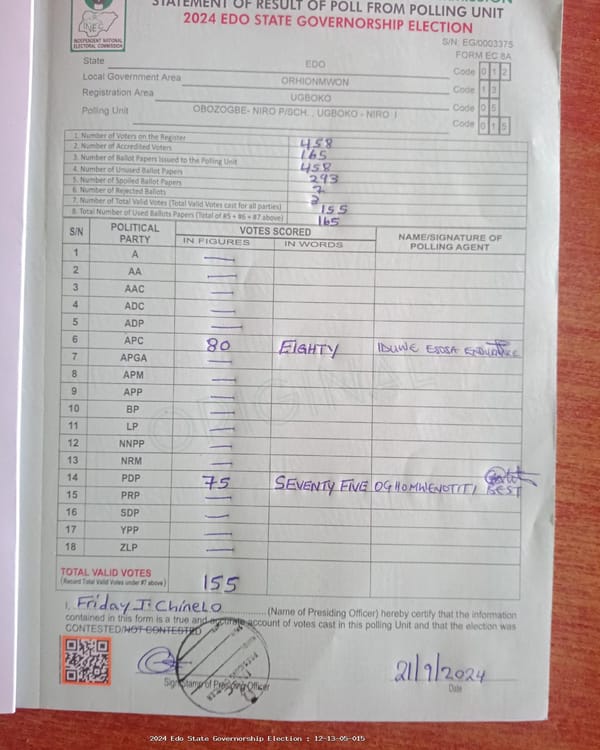 STATEMENT OF RESULT OF POLL FROM POLLING UNIT
2024 EDO STATE GOVERNORSHIP ELECTION
INEC
INDEPENDENT NATIONAL
ELECTORAL COMMISSION
S/N: EG/0003375
FORM EC 8A
State EDO Code 0 1 2
Local Government Area ORHIONMWON Code 1 3
Registration Area UGBOKO Code 0 5
Polling Unit OBOZOGBE- NIRO P/SCH. , UGBOKO - NIRO I Code 0 1 5
1. Number of Voters on the Register 458
2. Number of Accredited Voters 165
3. Number of Ballot Papers Issued to the Polling Unit 458
4. Number of Unused Ballot Papers 293
5. Number of Spoiled Ballot Papers
6. Number of Rejected Ballots
7. Number of Total Valid Votes (Total Valid Votes cast for all parties) 155
8. Total Number of Used Ballots Papers (Total of #5 + #6 + #7 above) 165
S/N POLITICAL PARTY VOTES SCORED NAME/SIGNATURE OF POLLING AGENT
IN FIGURES IN WORDS
1 A —
2 AA —
3 AAC —
4 ADC —
5 ADP —
6 APC 80 EIGHTY IDUWE ESOSA
7 APGA —
8 APM —
9 APP —
10 BP —
11 LP —
12 NNPP —
13 NRM —
14 PDP 75 SEVENTY FIVE OGHOMWENOTITI BEST
15 PRP —
16 SDP —
17 YPP —
18 ZLP —
ORIGINAL
TOTAL VALID VOTES
(Record Total Valid Votes under #7 above) 155
I, Friday J. Chinelo (Name of Presiding Officer) hereby certify that the information
contained in this form is a true and accurate account of votes cast in this polling Unit and that the election was
CONTESTED/NOT CONTESTED
21/9/2024
Sign/Stamp of Presiding Officer Date
2024 Edo State Governorship Election : 12-13-05-015